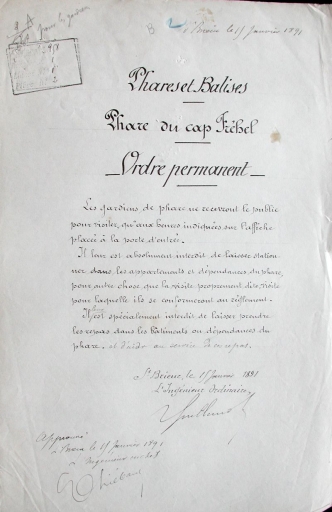 pour le gardien
B 2
St Brieuc le 15 Janvier 1891
Phares et Balises
Phare du cap Fréhel
Ordre permanent
Les gardiens de phare ne recevront le public
pour visiter, qu'aux heures indiquées sur l'affiche
placée à la porte d'entrée.
Il leur est absolument interdit de laisser station-
ner dans les appartements et dépendances du phare,
pour autre chose que la visite proprement dite visite
pour laquelle ils se conformeront au règlement.
Il est spécialement interdit de laisser prendre
les repas dans les bâtiments ou dépendances du
phare, et d'aider au service de ces repas.
St Brieuc, le 15 Janvier 1891
L'Ingénieur Ordinaire,
Approuvé
St Brieuc le 15 Janvier 1891
L'Ingénieur en chef